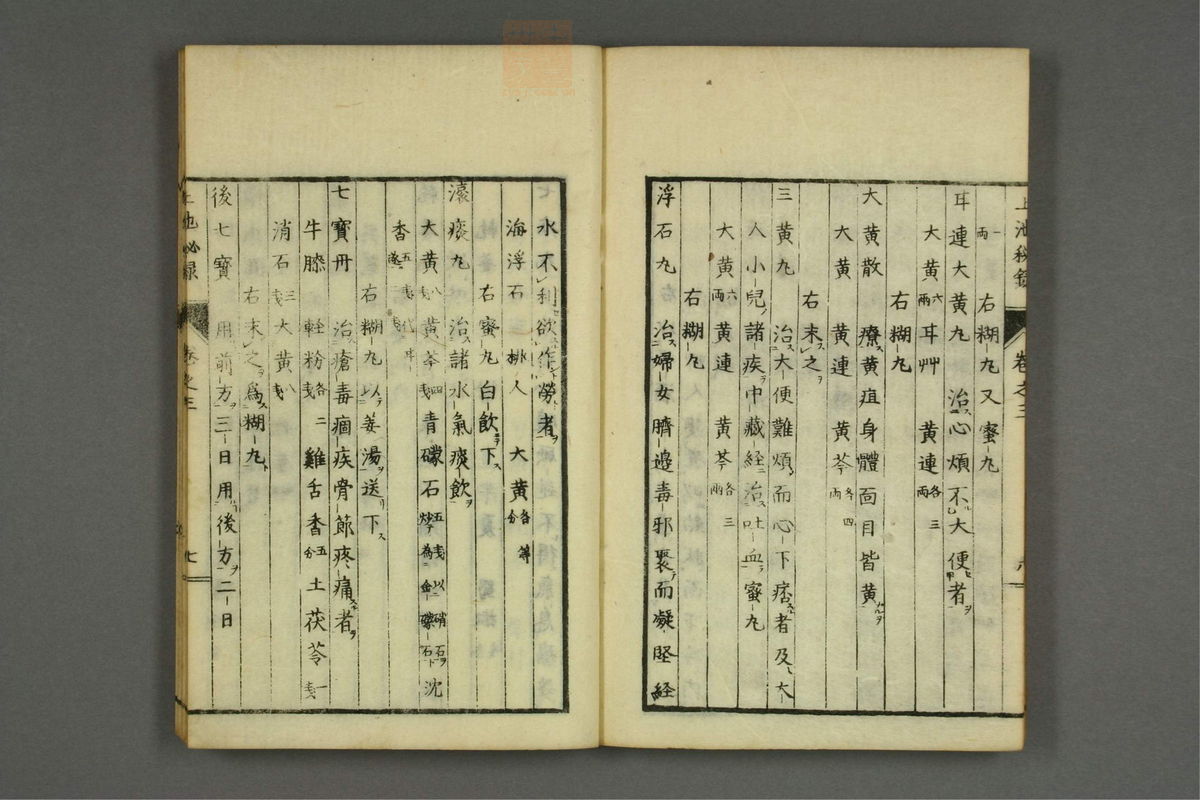 上池秘録 卷之三 六
一兩 右糊丸又蜜丸
耳連大黄丸 治心煩不大便者
大黄六兩 耳艸 黄連各三兩
右糊丸
大黄散 療黄疸身體面目皆黄
大黄 黄連 黄芩各四兩
右末之
三黄丸 治大便難煩而心下痞者及大
人小兒諸疾中藏経治吐血蜜丸
大黄六兩 黄連 黄芩各三兩
右糊丸
浮石丸 治婦女臍邉毒邪聚而凝䀼経
水不利欲作勞者
海浮石 桃人 大黄各等分
右蜜丸白飲下
滚痰丸 治諸水氣痰飲
大黄八戔 黄芩四戔 青礞石五戔以硝石炒為金礞石 沈
香五戔
右糊丸以姜湯送下
七寶丹 治瘡毒痼疾骨節疼痛者
牛膝 軽粉各二戔 雞舌香五分 土茯苓一戔
消石三戔 大黄八戔
右末之為糊丸
後七寶 用前方三日用後方二日
上池秘録 卷之三 七